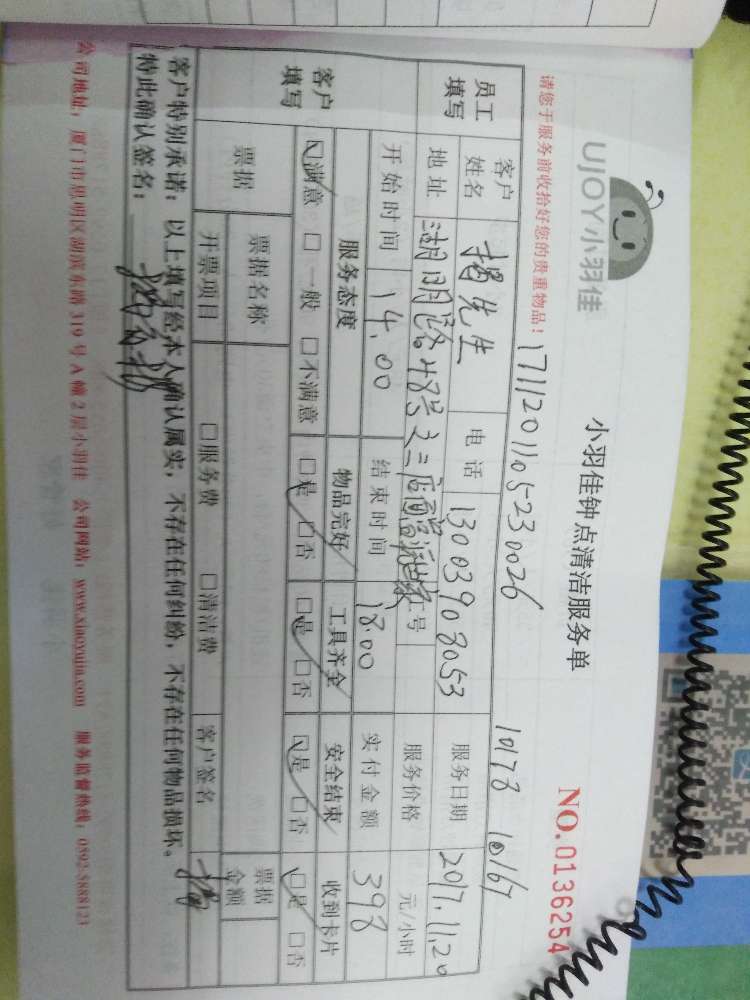 UJOY小羽佳
小羽佳钟点清洁服务单
NO.0136254
请您于服务前收拾好您的贵重物品！
1711201105230026
10173 10167
员工填写
客户姓名 杨先生 电话 13003908053 服务日期 2017.11.20
地址 湖明路48号之二店面 工号 服务价格 元/小时
开始时间 14.00 结束时间 18.00 实付金额 398
客户填写
服务态度 物品完好 工具齐全 安全结束 收到卡片
☑满意 □一般 □不满意 ☑是 □否 ☑是 □否 ☑是 □否 ☑是 □否
票据 票据名称 票据金额
开票项目 □服务费 □清洁费 客户签名 杨
客户特别承诺：以上填写经本人确认属实，不存在任何纠纷，不存在任何物品损坏。
特此确认签名：
公司地址：厦门市思明区湖滨东路319号A幢2层小羽佳 公司网站：www.xiaoyujia.com 服务监督热线：0592-5888123